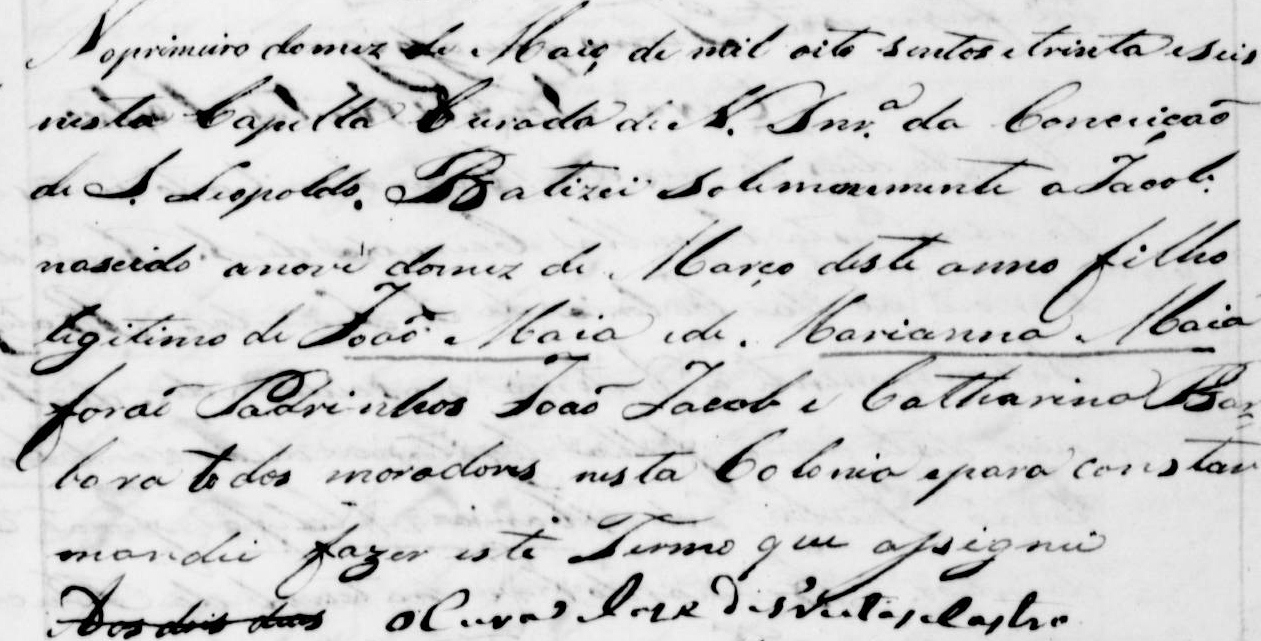 No primeiro do mez de Maio de mil oito sentos e trinta e seis
nesta Capella Curada de N. Snr.ª da Conceição
de S. Leopoldo. Batizei Solemnemente a Jacob.
nascido a nove do mez de Março deste anno filho
legitimo de João Maia e de Marianna Maia
forão Padrinhos João Jacob e Catharina Bar
bara todos moradores nesta Colonia e para constar
mandei fazer este Termo que assignei
Aos dois dias O Cura José de Castro